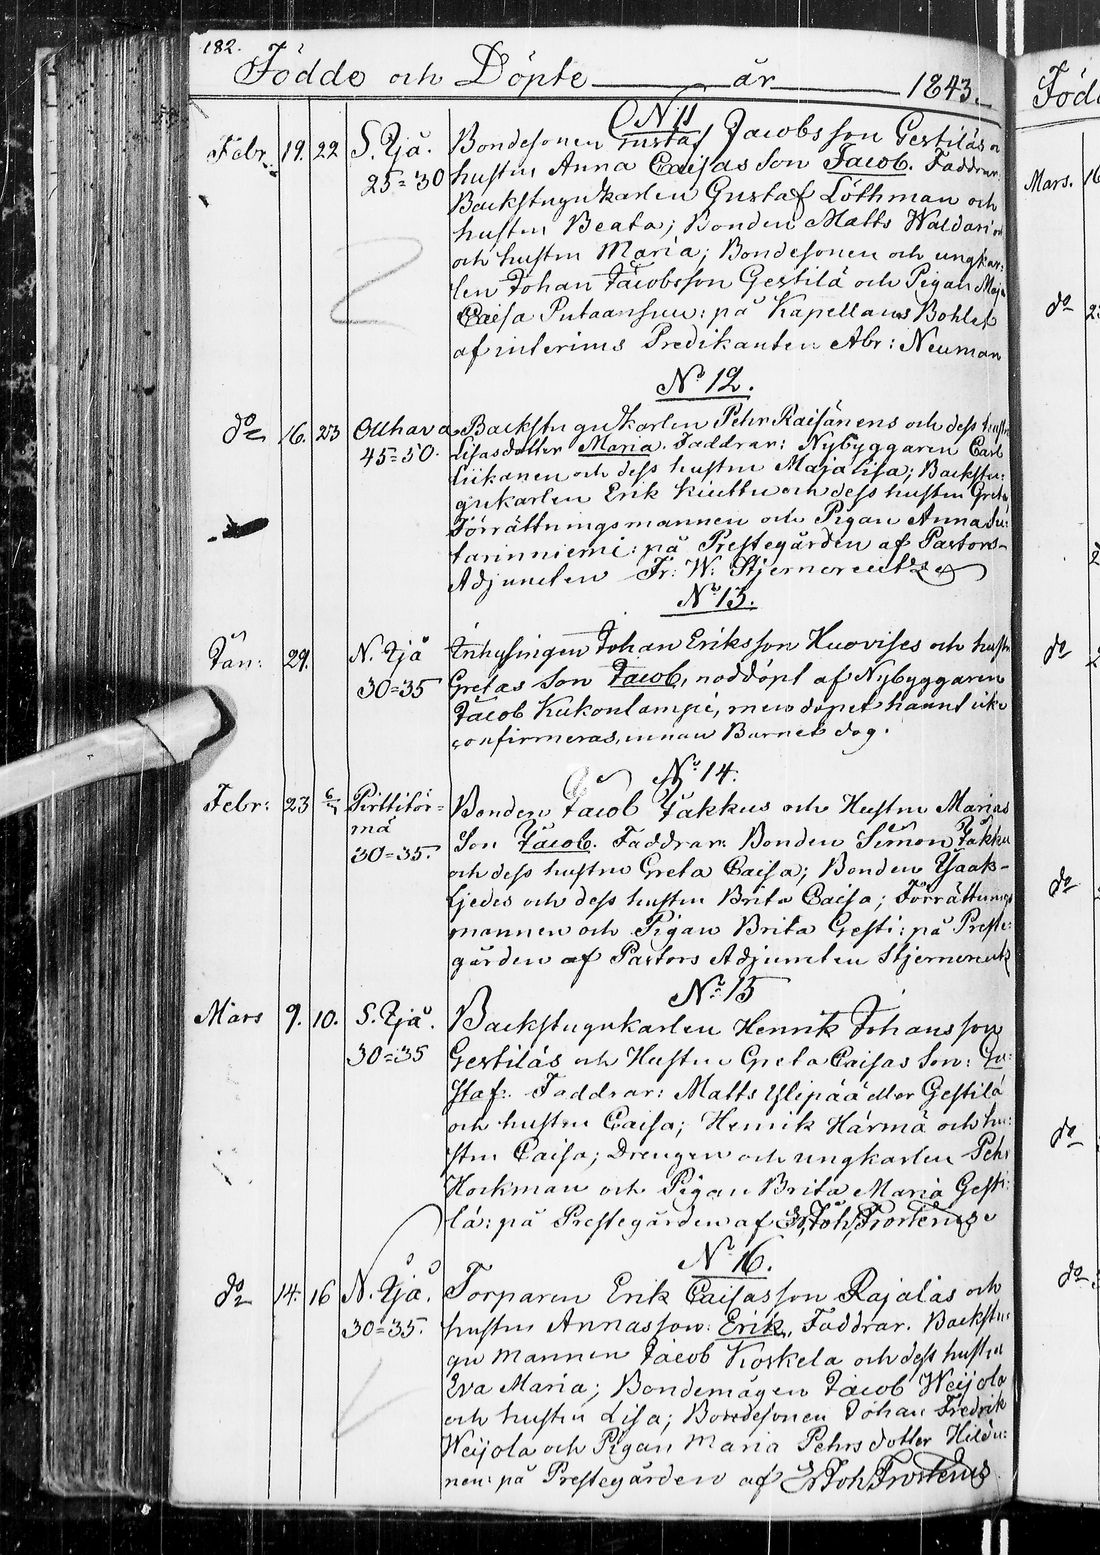 182.
Födde och Döpte år 1843.
N 11
Febr. 19. 22 S. Ijå. Bondesonen Gustaf Jacobsson Gestiläs o
25=30 hustru Anna Caisas Son Jacob. Faddrar:
Backstugukarlen Gustaf Löthman och
hustru Beata; Bonden Matts Waldari
och hustru Maria; Bondesonen och ungkar=
len Johan Jacobsson Gestilä och Pigan Maja
Caisa : på Kapellans Bohlet
af interims Predikanten Abr: Neuman
No 12.
do 16. 23 Ollhava Backstugukarlen Pehr Raisänens och dess hustru
45=50. Lisas dotter Maria. Faddrar: Nybyggaren Carl
Liikanen och dess hustru Maja Lisa; Backstu=
gukarlen Erik Kiuttu och dess hustru Greta
Förrättningsmannen och Pigan Anna
: på Prestegården af Pastors-
Adjuncten Fr: W: Stjerncreutz
No 13.
Jan: 29. N. Ijå Inhysingen Johan Eriksson Huovises och hustru
30=35 Gretas Son Jacob, nöddöpt af Nybyggaren
Jacob Kukonlampi, men döpet hannt icke
confirmeras, innan Barnet dog.
No 14.
Febr: 23 6/7 Pirttitör=
mä
30=35. Bonden Jacob Jakkus och Hustru Marias
Son Jacob. Faddrar: Bonden Simon Jakku
och dess hustru Greta Caisa; Bonden Isaak-
och dess hustru Brita Caisa; Förrättnings
mannen och Pigan Brita Gesti: på Preste=
gården af Pastors Adjuncten Stjerncreutz
No 15
Mars 9. 10. S. Ijå. Backstugukarlen Henrik Johansson
30=35 Gestiläs och Hustru Greta Caisas Son: Gu=
staf. Faddrar: Matts Ylipää eller Gestilä
och hustru Caisa; Henrik Härmä och hu=
stru Caisa; Drengen och ungkarlen Pehr
Hockman och Pigan Brita Maria Gesti=
lä: på Prestegården af Joh. Frosterus
No 16.
do 14. 16 N. Ijå. Torparen Erik Caisasson Rajalas och
30=35. hustru Annas son: Erik. Faddrar. Backstu=
gu mannen Jacob Koskela och dess hustru
Eva Maria; Bondemågen Jacob Weijola
och hustru Lisa; Bondesonen Johan Fredrik
Weijola och Pigan Maria Pehrsdotter Hildu=
nen: på Prestegården af Joh Frosterus
Föd
Mars. 16
do 2
do
do
do
do